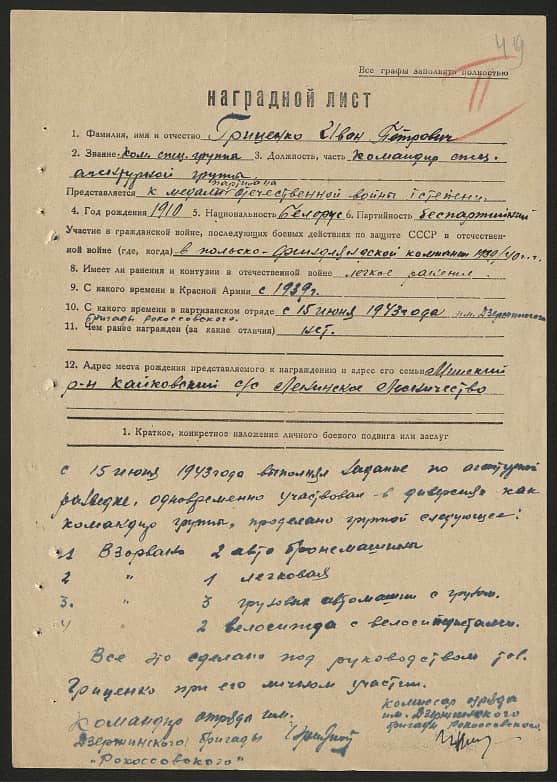 49
Все графы заполнять полностью
НАГРАДНОЙ ЛИСТ
1. Фамилия, имя и отчество Гриценко Иван Петрович
2. Звание ком. спец. группы 3. Должность, часть командир спец.
агентурной группы
партизана
Представляется к медали отечественной войны I степени.
4. Год рождения 1910 5. Национальность Белорус 6. Партийность беспартийный
Участие в гражданской войне, последующих боевых действиях по защите СССР в отечествен-
ной войне (где, когда) в польско-финляндской компании 1939/40 г.г.
8. Имеет ли ранения и контузии в отечественной войне легкое ранение
9. С какого времени в Красной Армии с 1939 г.
10. С какого времени в партизанском отряде с 15 июня 1943 года им. Дзержинского
бригады Рокоссовского.
11. Чем ранее награжден (за какие отличия) нет.
12. Адрес места рождения представляемого к награждению и адрес его семьи Минский
р-н Хайковский с/с Ленинское Лесничество
1. Краткое, конкретное изложение личного боевого подвига или заслуг
с 15 июня 1943 года выполнял задание по агентурной
разведке, одновременно участвовал в диверсиях как
командир группы, проделано группой следующее:
1 Взорвано 2 авто бронемашины
2 " 1 легковая
3. " 3 грузовых автомашин с грузом.
4 " 2 велосипеда с велосипедистами.
Все это сделано под руководством тов.
Гриценко при его личном участии.
Командир отряда им.
Дзержинского бригады
"Рокоссовского"
комиссар отряда
им. Дзержинского
бригады Рокоссовского.